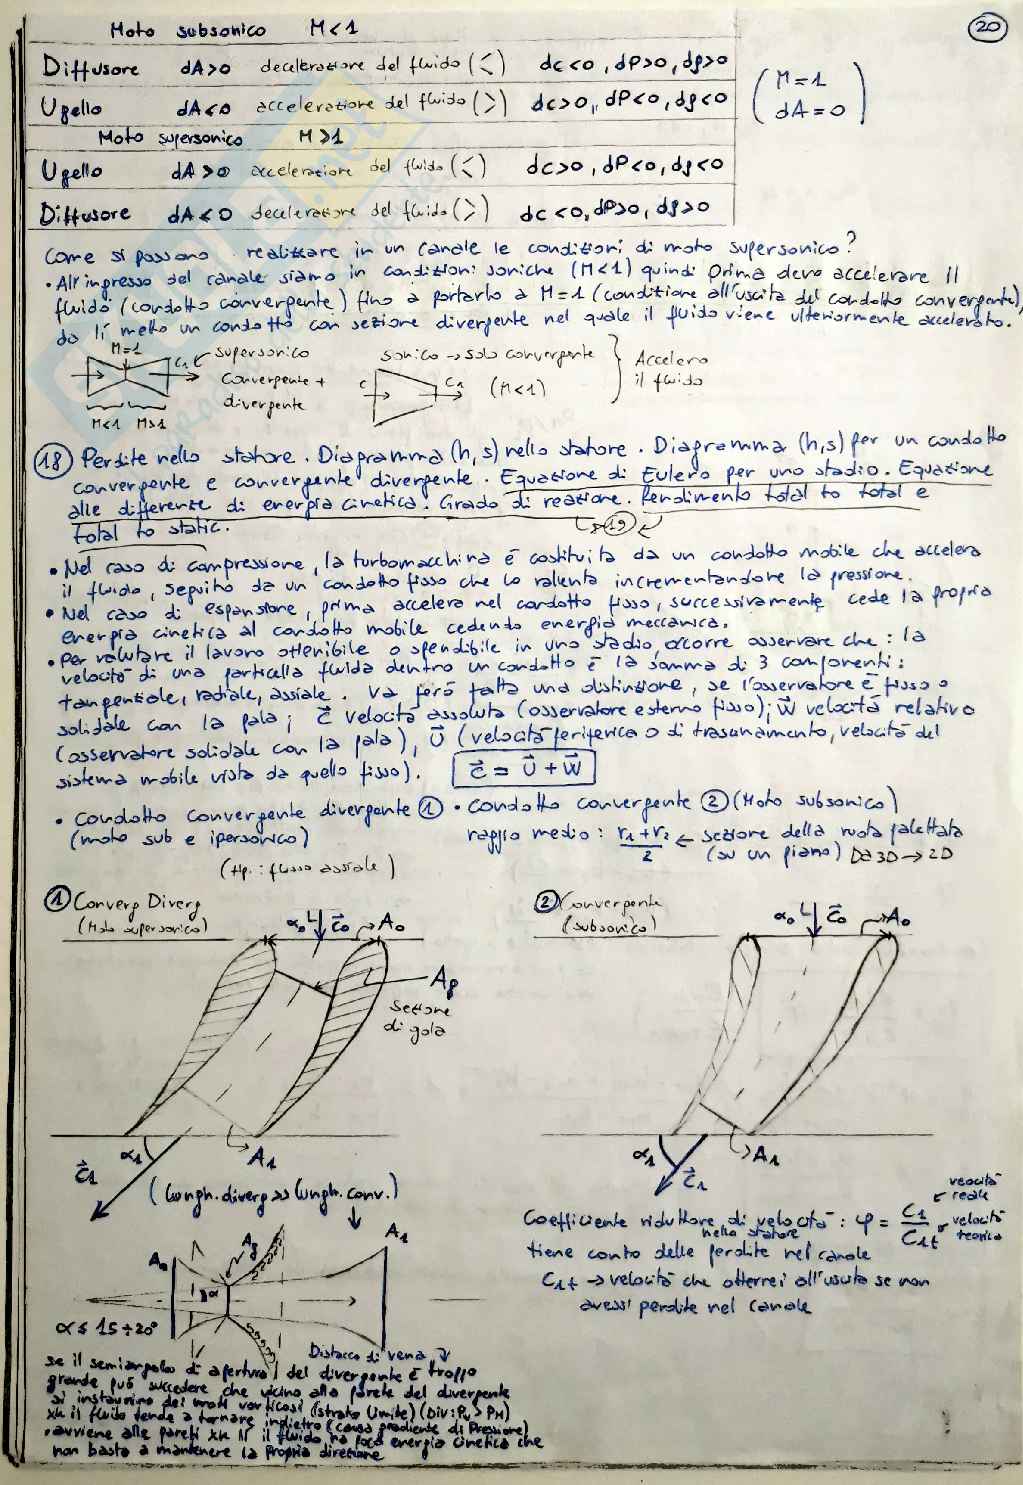 20
Moto subsonico M<1
Diffusore dA>0 decelerazione del fluido (<) dc<0, dP>0, dρ>0
Ugello dA<0 accelerazione del fluido (>) dc>0, dP<0, dρ<0
(M=1
dA=0)
Moto supersonico M>1
Ugello dA>0 accelerazione del fluido (<) dc>0, dP<0, dρ<0
Diffusore dA<0 decelerazione del fluido (>) dc<0, dP>0, dρ>0
Come si possono realizzare in un canale le condizioni di moto supersonico?
• All'ingresso del canale siamo in condizioni soniche (M<1) quindi prima devo accelerare il
fluido (condotto convergente) fino a portarlo a M=1 (condizione all'uscita del condotto convergente),
da lì metto un condotto con sezione divergente nel quale il fluido viene ulteriormente accelerato.
M=1
C1
supersonico
convergente +
divergente
M<1 M>1
sonico → solo convergente
c
C1
(M<1)
Accelero
il fluido
18 Perdite nello statore. Diagramma (h,s) nello statore. Diagramma (h,s) per un condotto
convergente e convergente divergente. Equazione di Eulero per uno stadio. Equazione
alle differenze di energia cinetica. Grado di reazione. Rendimento total to total e
total to static.
19
• Nel caso di compressione, la turbomacchina è costituita da un condotto mobile che accelera
il fluido, seguito da un condotto fisso che lo rallenta incrementandone la pressione.
• Nel caso di espansione, prima accelera nel condotto fisso, successivamente cede la propria
energia cinetica al condotto mobile cedendo energia meccanica.
• Per valutare il lavoro ottenibile o spendibile in uno stadio, occorre osservare che: la
velocità di una particella fluida dentro un condotto è la somma di 3 componenti:
tangenziale, radiale, assiale. Va però fatta una distinzione, se l'osservatore è fisso o
solidale con la pala; C⃗ velocità assoluta (osservatore esterno fisso); W⃗ velocità relativa
(osservatore solidale con la pala), U⃗ (velocità periferica o di trascinamento, velocità del
sistema mobile vista da quello fisso). C⃗ = U⃗ + W⃗
• Condotto convergente divergente 1
(moto sub e ipersonico)
• Condotto convergente 2 (Moto subsonico)
raggio medio: r1+r2/2 ← sezione della ruota palettata
(su un piano) Da 3D → 2D
(Hp.: flusso assiale)
1 Converg Diverg
(Moto supersonico)
α0 C⃗0 A0
Ag
sezione
di gola
α1 A1
C⃗1
2 Convergente
(subsonico)
α0 C⃗0 A0
α1 A1
C⃗1
(lungh. diverg >> lungh. conv.)
A0 Ag A1
α
α ≤ 15÷20°
Coefficiente riduttore di velocità: φ = C1/C1t
nello statore
velocità
reale
velocità
teorica
tiene conto delle perdite nel canale
C1t → velocità che otterrei all'uscita se non
avessi perdite nel canale
Distacco di vena
se il semiangolo di apertura del divergente è troppo
grande può succedere che vicino alla parete del divergente
si instaurino dei moti vorticosi (strato limite) (Div: Pv > PM)
xk il fluido tende a tornare indietro (causa gradiente di pressione)
• avviene alle pareti xk lì il fluido ha poca energia cinetica che
non basta a mantenere la propria direzione